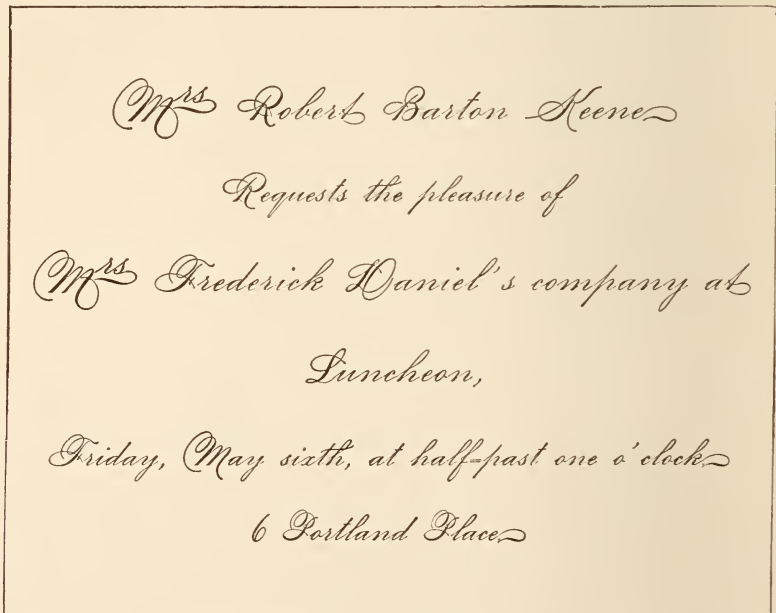 Mrs Robert Barton Keene
Requests the pleasure of
Mrs Frederick Daniel's company at
Luncheon,
Friday, May sixth, at half-past one o'clock
6 Portland Place